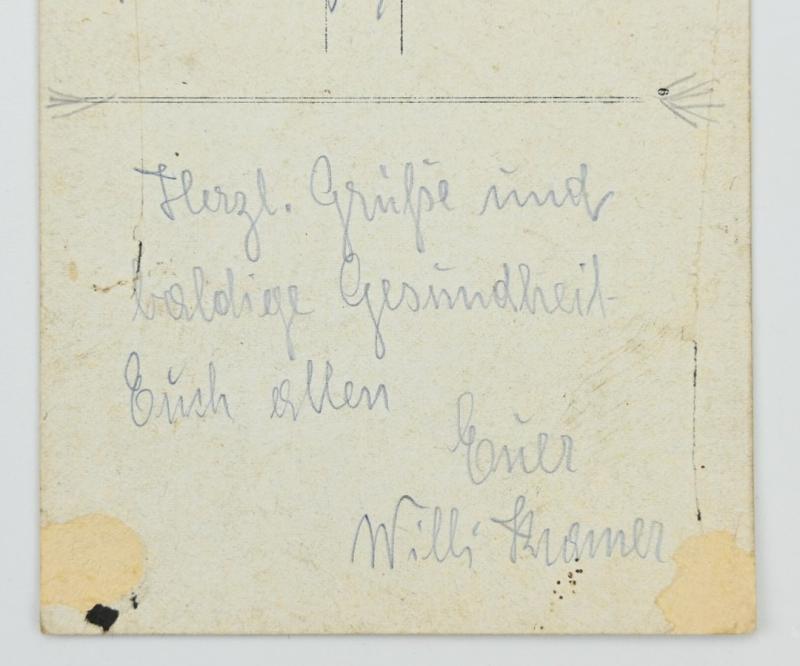 Herzl. Grüße und
baldige Gesundheit
Euch allen
Euer
Willi Kramer